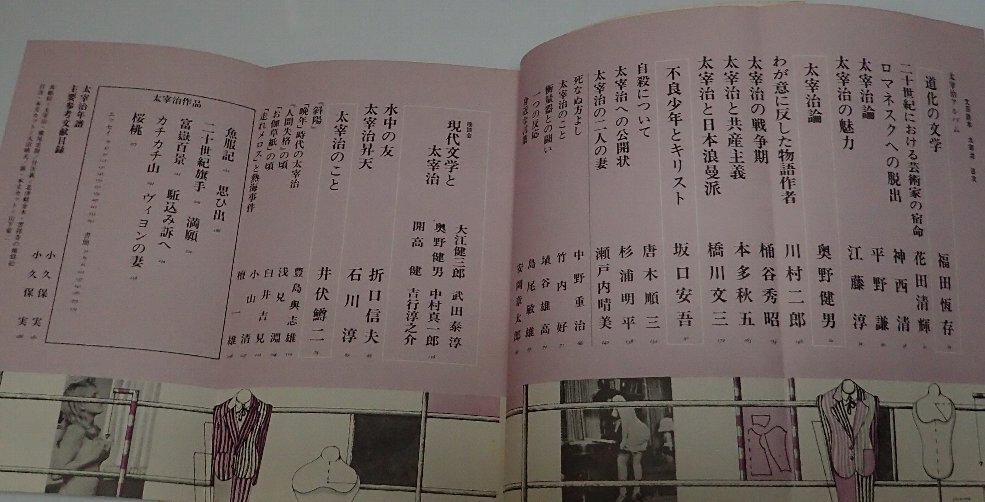 文芸読本 太宰治 目次
太宰治アルバム
道化の文学 福田恆存
二十世紀における芸術家の宿命 花田清輝
ロマネスクへの脱出 神西清
太宰治論 平野謙
太宰治の魅力 江藤淳
太宰治論 奥野健男
わが意に反した物語作者 川村二郎
太宰治の戦争期 桶谷秀昭
太宰治と共産主義 本多秋五
太宰治と日本浪曼派 橋川文三
不良少年とキリスト 坂口安吾
自殺について 唐木順三
太宰治への公開状 杉浦明平
太宰治の二人の妻 瀬戸内晴美
死なぬ方よし 中野重治
太宰治のこと 竹内好
衡量器との闘い 埴谷雄高
一つの反応 島尾敏雄
身近な言葉 安岡章太郎
座談会
現代文学と太宰治
大江健三郎 武田泰淳
奥野健男 中村真一郎
開高健 吉行淳之介
水中の友 折口信夫
太宰治昇天 石川淳
太宰治のこと 井伏鱒二
「斜陽」
「晩年」時代の太宰治 豊島与志雄
「人間失格」の頃 浅見淵
「お伽草紙」の頃 臼井吉見
小山清
「走れメロス」と熱海事件 檀一雄
太宰治作品
魚服記 思ひ出
二十世紀旗手 満願
富嶽百景 駈込み訴へ
カチカチ山 ヴィヨンの妻
桜桃
太宰治年譜 小久保実
主要参考文献目録 小久保実